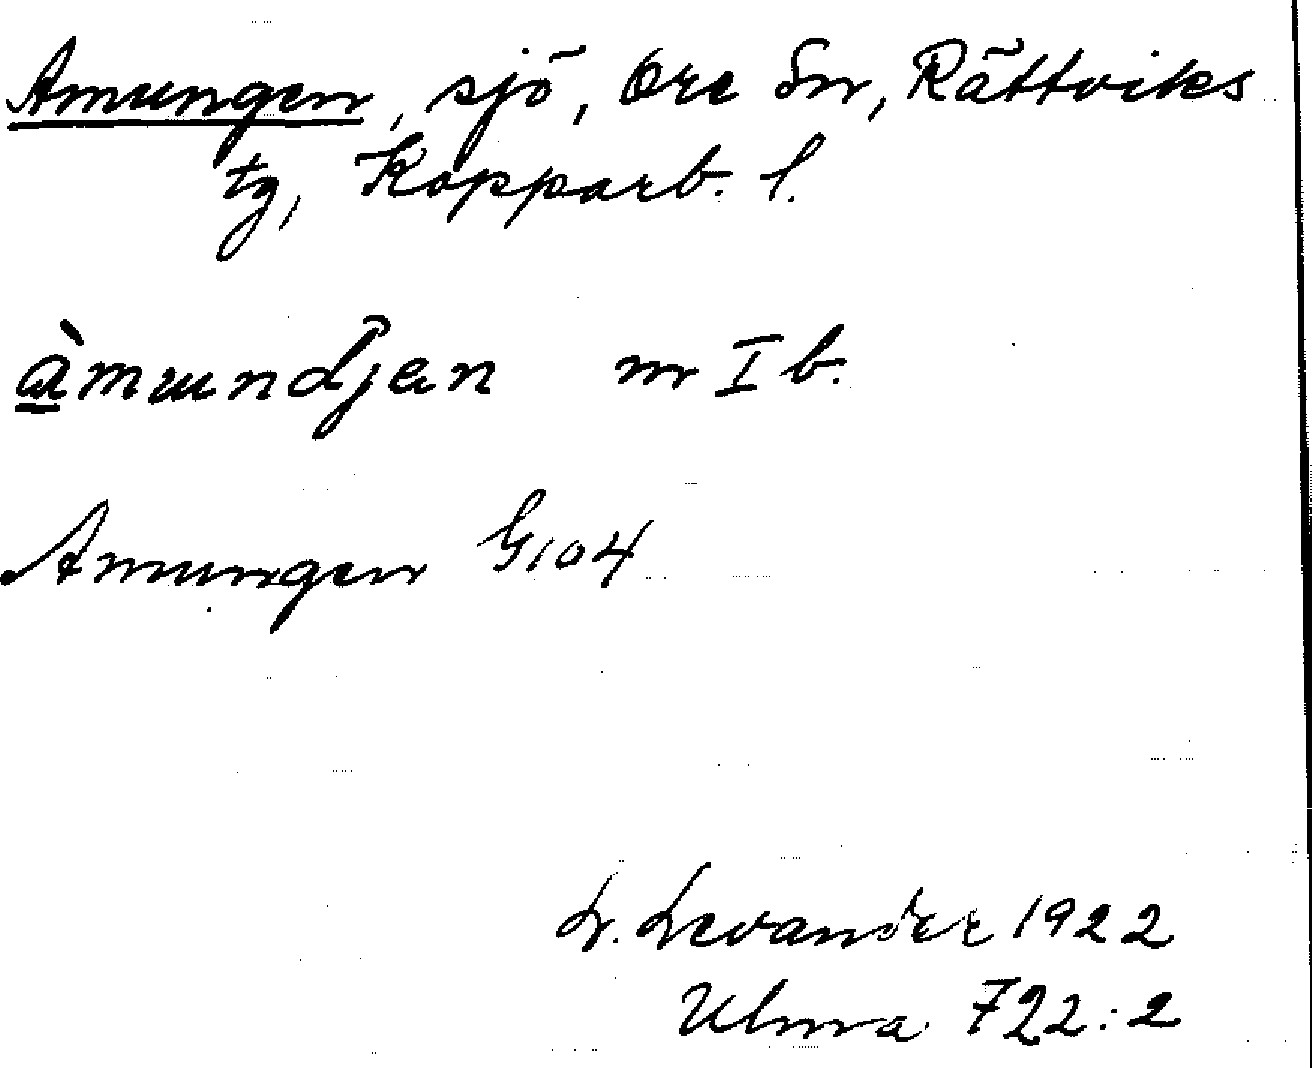 Amungen, sjö, Ore Sn, Rättviks
tg, Kopparb. l.
àmundjen nr I b.
Amungen G104
L. Levander 1922
Ulma 722:2